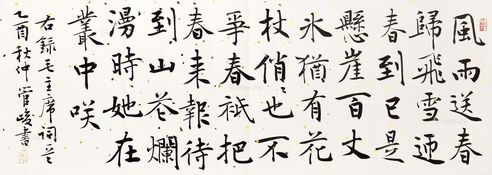 風雨送春
歸飛雪迎
春到已是
懸崖百丈
氷猶有花
枝俏々也不
爭春祇把
春来報待
到山花爛
漫時她在
叢中咲
右錄毛主席詞
乙酉秋仲管峻書